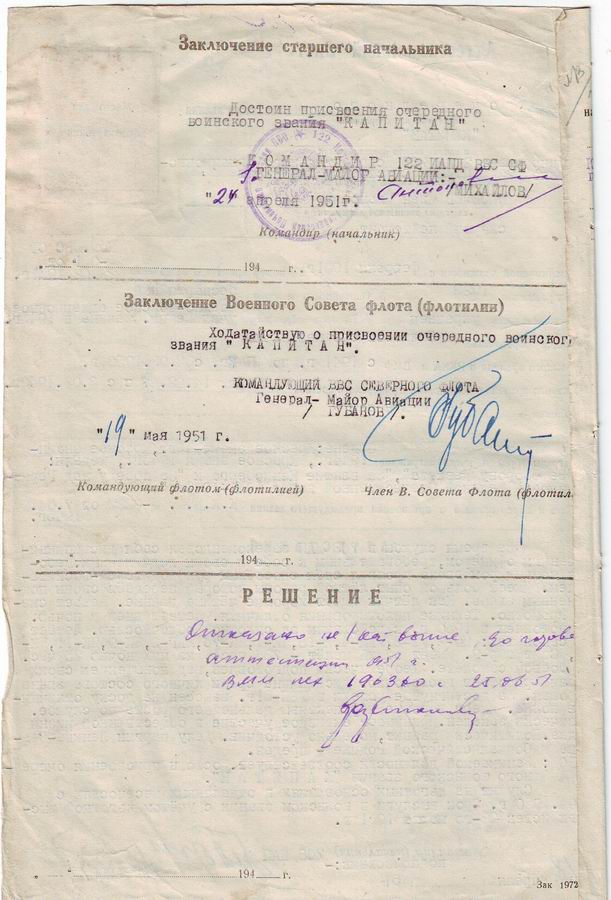 Заключение старшего начальника
Достоин присвоения очередного
воинского звания "КАПИТАН"
КОМАНДИР 122 ИАПД ВВС СФ
ГЕНЕРАЛ-МАЙОР АВИАЦИИ:-
/МИХАЙЛОВ/
"24" апреля 1951г.
Командир (начальник)
" " 194 г.
Заключение Военного Совета флота (флотилии)
Ходатайствую о присвоении очередного воинског
звания "КАПИТАН".
КОМАНДУЮЩИЙ ВВС СЕВЕРНОГО ФЛОТА
Генерал- Майор Авиации
/ ГУБАНОВ .
"19" мая 1951 г.
Командующий флотом (флотилией) Член В. Совета Флота (флотил
" " 194 г.
РЕШЕНИЕ
Отказано
аттестации 51 г.
ВММ 190380 25.06.51
" " 194 г.
Зак 1972